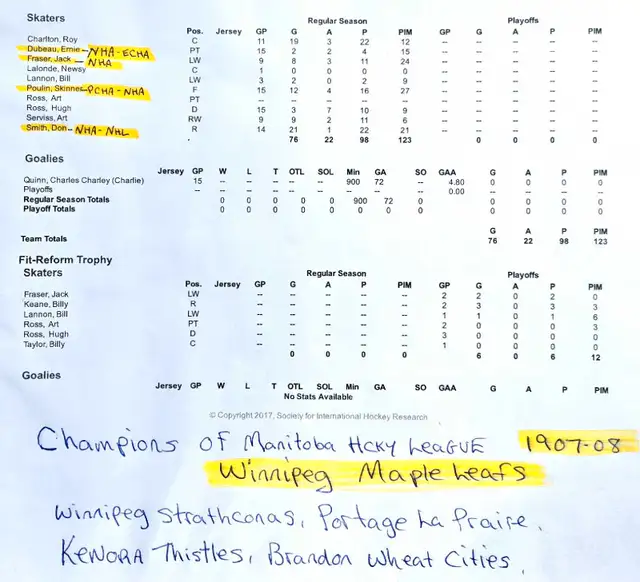 Skaters
Regular Season Playoffs
Pos. Jersey GP G A P PIM GP G A P PIM
Charlton, Roy C 11 19 3 22 12 -- -- -- -- --
Dubeau, Ernie - NHA-ECHA PT 15 2 2 4 15 -- -- -- -- --
Fraser, Jack - NHA LW 9 8 3 11 24 -- -- -- -- --
Lalonde, Newsy C 1 0 0 0 0 -- -- -- -- --
Lannon, Bill LW 3 2 0 2 9 -- -- -- -- --
Poulin, Skinner - PCHA-NHA F 15 12 4 16 27 -- -- -- -- --
Ross, Art PT -- -- -- -- -- -- -- -- -- --
Ross, Hugh D 15 3 7 10 9 -- -- -- -- --
Serviss, Art RW 9 9 2 11 6 -- -- -- -- --
Smith, Don - NHA-NHL R 14 21 1 22 21 -- -- -- -- --
76 22 98 123 0 0 0 0
Goalies
Jersey GP W L T OTL SOL Min GA SO GAA G A P PIM
Quinn, Charles Charley (Charlie) 15 -- -- -- -- -- 900 72 -- 4.80 0 0 0 0
Playoffs -- -- -- -- -- -- -- -- -- 0.00 0 0 0 0
Regular Season Totals 0 0 0 0 0 900 72 0 0 0 0 0
Playoff Totals 0 0 0 0 0 0 0 0 0 0 0 0
G A P PIM
Team Totals 76 22 98 123
Fit-Reform Trophy
Skaters
Regular Season Playoffs
Pos. Jersey GP G A P PIM GP G A P PIM
Fraser, Jack LW -- -- -- -- -- 2 2 0 2 0
Keane, Billy R -- -- -- -- -- 2 3 0 3 3
Lannon, Bill LW -- -- -- -- -- 1 1 0 1 6
Ross, Art PT -- -- -- -- -- 2 0 0 0 3
Ross, Hugh D -- -- -- -- -- 3 0 0 0 0
Taylor, Billy C -- -- -- -- -- 1 0 0 0 0
0 0 0 0 6 0 6 12
Goalies
Jersey GP W L T OTL SOL Min GA SO GAA G A P PIM
No Stats Available
© Copyright 2017, Society for International Hockey Research
Champions of Manitoba Hcky League 1907-08
Winnipeg Maple Leafs
Winnipeg Strathconas, Portage La Prairie,
Kenora Thistles, Brandon Wheat Cities,